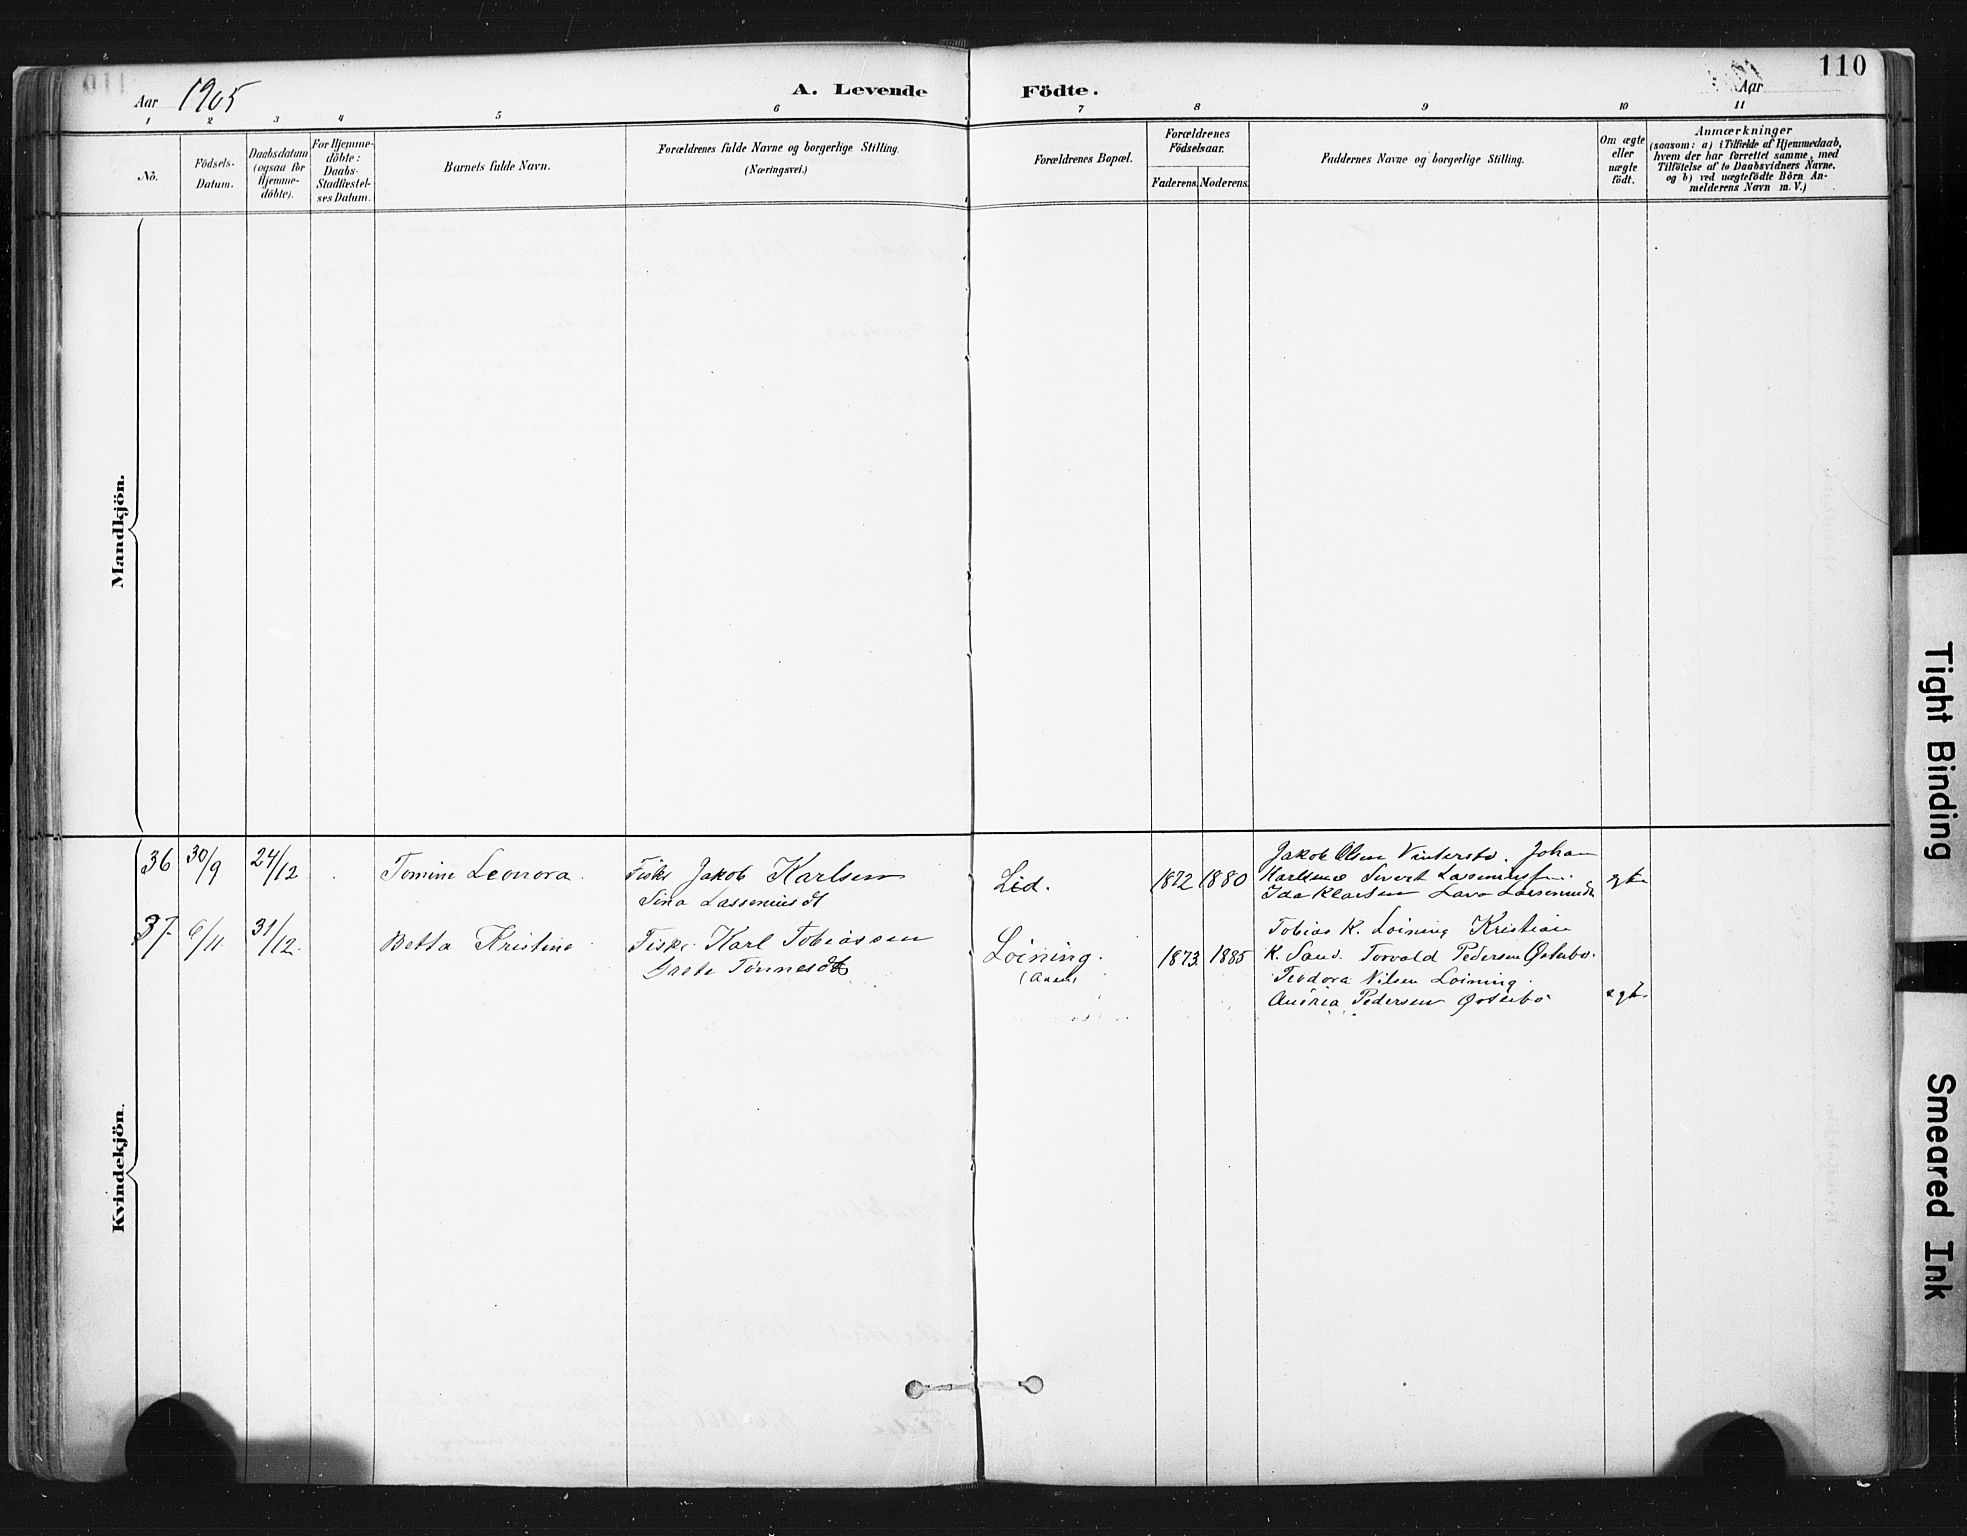 110
Aar 1905
A. Levende Födte.
Aar
1 2 3 4 5 6 7 8 9 10 11
No.
Födsels-
Datum.
Daabsdatum
(ogsaa for
Hjemme-
döbte).
For Hjemme-
döbte:
Daabs-
Stadfestel-
ses Datum.
Barnets fulde Navn.
Forældrenes fulde Navne og borgerlige Stilling.
(Næringsvei.)
Forældrenes Bopæl.
Forældrenes
Födselsaar.
Faderens. Moderens.
Faddernes Navne og borgerlige Stilling.
Om ægte
eller
uægte
födt.
Anmærkninger
(saasom: a) i Tilfælde af Hjemmedaab,
hvem der har forrettet samme, med
Tilföielse af to Daabsvidners Navne.
og b) ved uægtefödte Börn An-
melderens Navn m. V.)
Mandkjön.
Kvindekjön.
36 30/9 24/12 Tomine Leonora. Fisk. Jakob Karlsen
Sina Lassenius dt
Lid. 1872 1880
Jakob Olsen Vintersto. Johan
Sivert
Ida Klarsen Lava
egte
37. 6/11. 31/12. Betta Kristine Fisk. Karl Tobiassen
Grete Tönnesdt
Löining. 1873. 1885
Tobias K. Loining Kristian
K. Sand. Torvald Pedersen Østebö.
Teodora Nilsen Loining.
Pedersen Østebö
egte
Tight Binding
Smeared Ink